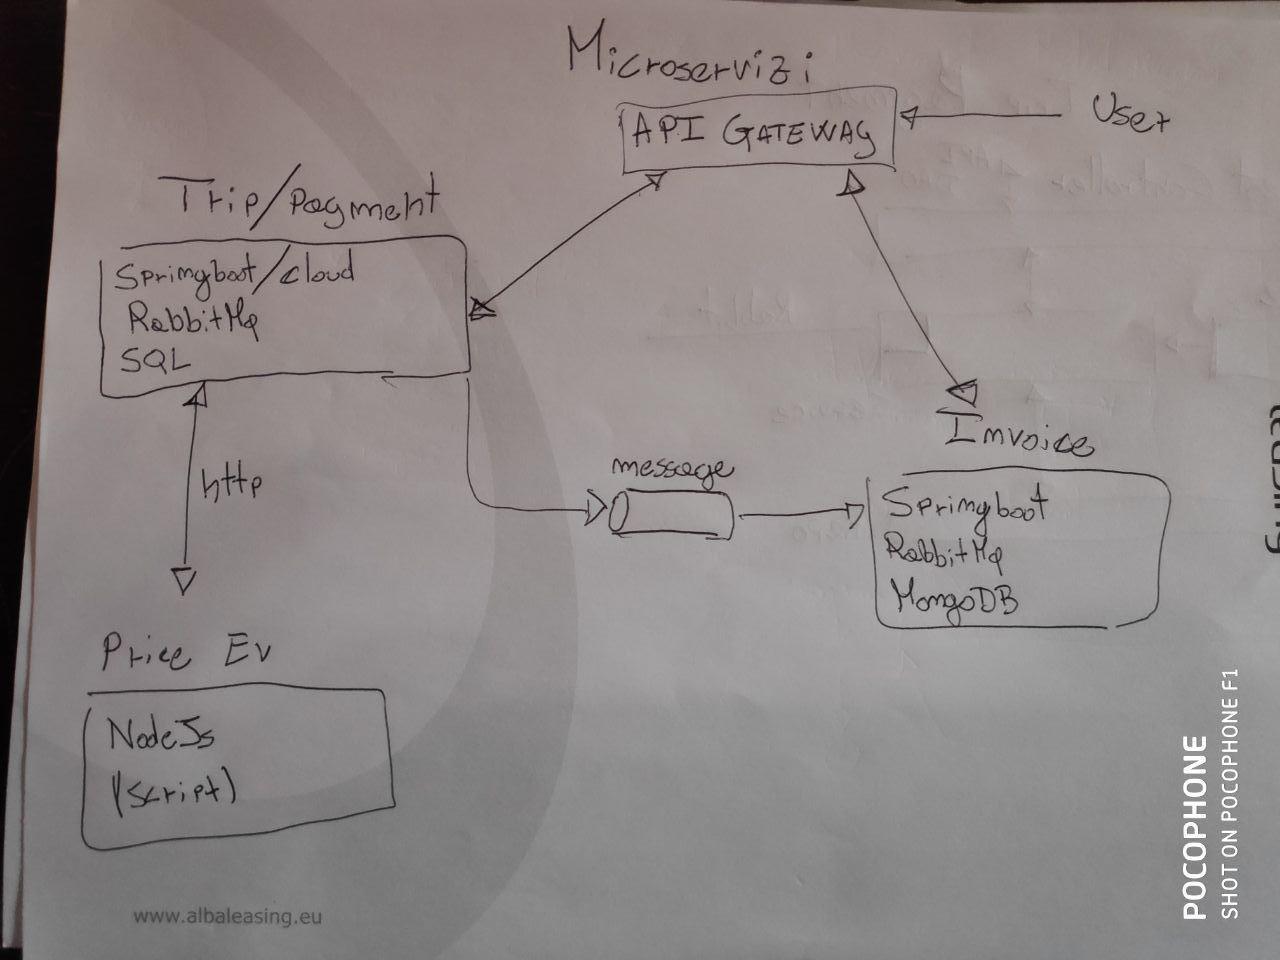 Microservizi
API GATEWAY
User
Trip/Payment
Springboot/cloud
RabbitMq
SQL
http
message
Invoice
Springboot
RabbitMq
MongoDB
Price Ev
NodeJs
(script)
www.albaleasing.eu
POCOPHONE
SHOT ON POCOPHONE F1